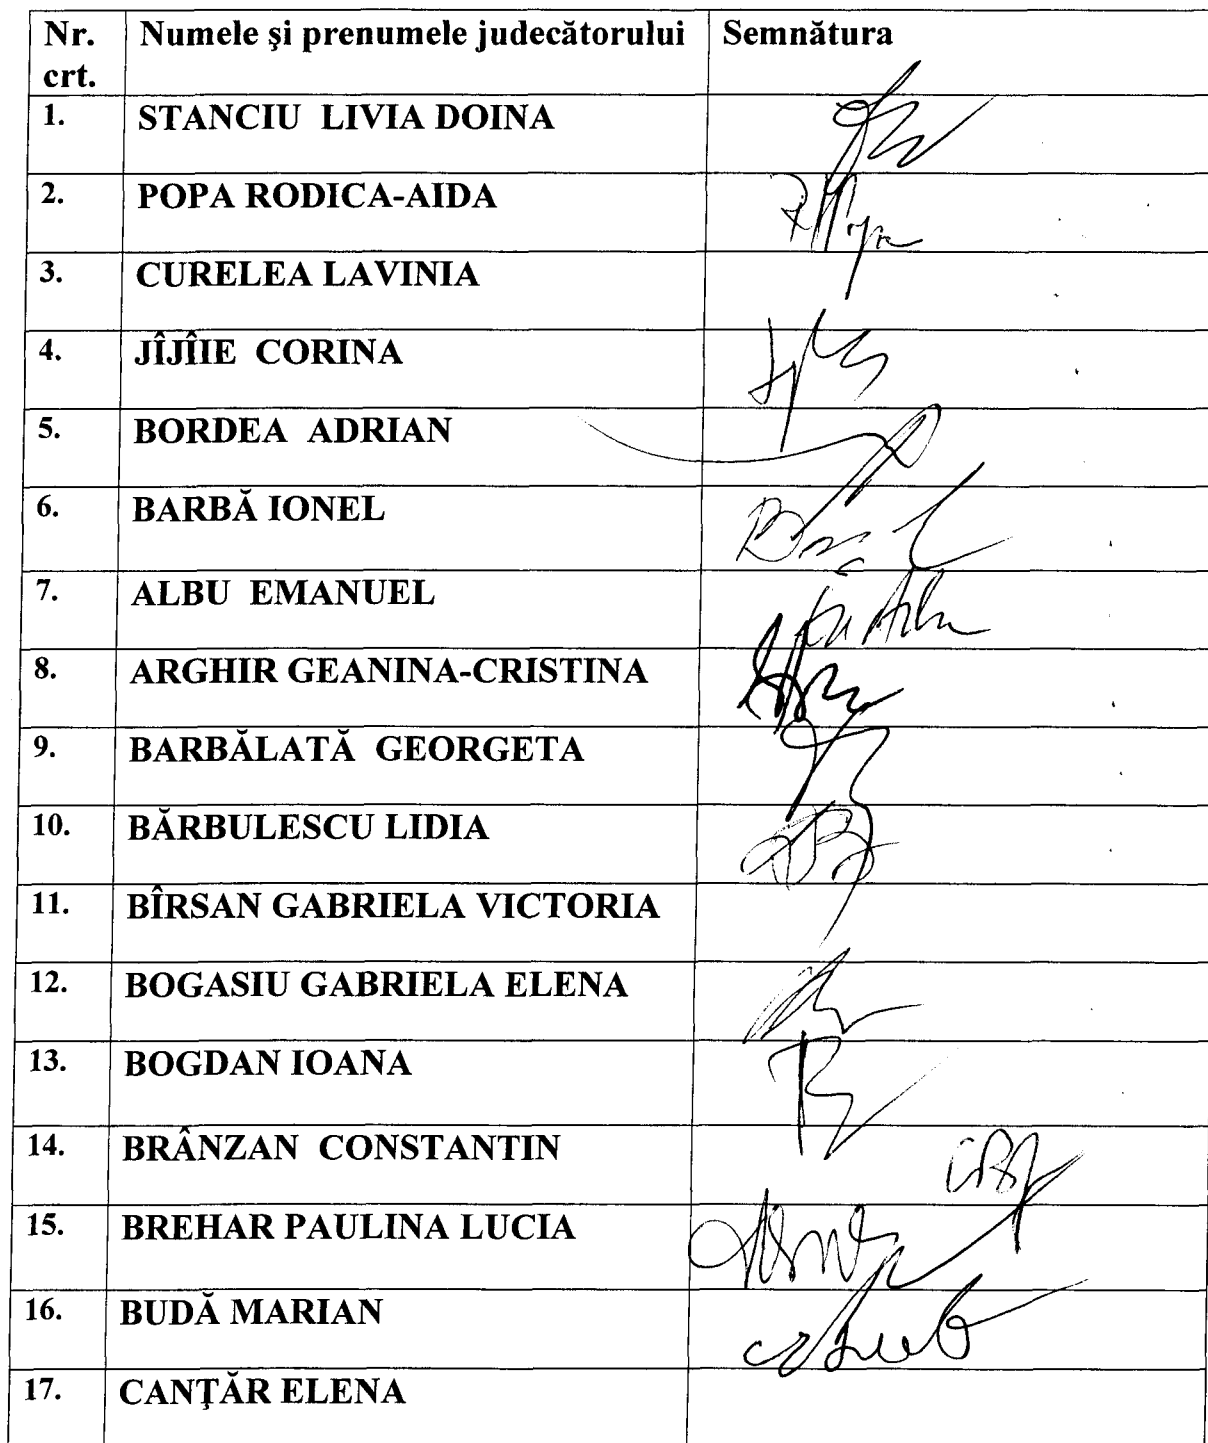 Nr. crt. Numele şi prenumele judecătorului Semnătura
1. STANCIU LIVIA DOINA
2. POPA RODICA-AIDA
3. CURELEA LAVINIA
4. JÎJÎIE CORINA
5. BORDEA ADRIAN
6. BARBĂ IONEL
7. ALBU EMANUEL
8. ARGHIR GEANINA-CRISTINA
9. BARBĂLATĂ GEORGETA
10. BĂRBULESCU LIDIA
11. BÎRSAN GABRIELA VICTORIA
12. BOGASIU GABRIELA ELENA
13. BOGDAN IOANA
14. BRÂNZAN CONSTANTIN
15. BREHAR PAULINA LUCIA
16. BUDĂ MARIAN
17. CANŢĂR ELENA